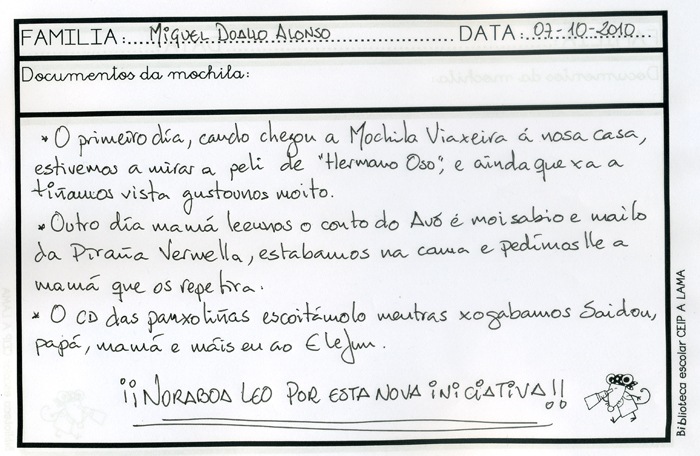 FAMILIA:..... MIGUEL DOALLO ALONSO ............... DATA:. 07-10-2010...
Documentos da mochila:
* O primeiro día, cando chegou a Mochila Viaxeira á nosa casa,
estivemos a mirar a peli de "Hermano Oso", e aínda que xa a
tiñamos vista gustounos moito.
* Outro día mamá leeunos o conto do Avó é moi sabio e mailo
da Piraña Vermella, estabamos na cama e pedímoslle a
mamá que os repetira.
* O CD das panxoliñas escoitámolo mentras xogabamos Saidou,
papá, mamá e máis eu ao Elefun.
¡¡NORABOA LEO POR ESTA NOVA INICIATIVA!!
Biblioteca escolar CEIP A LAMA